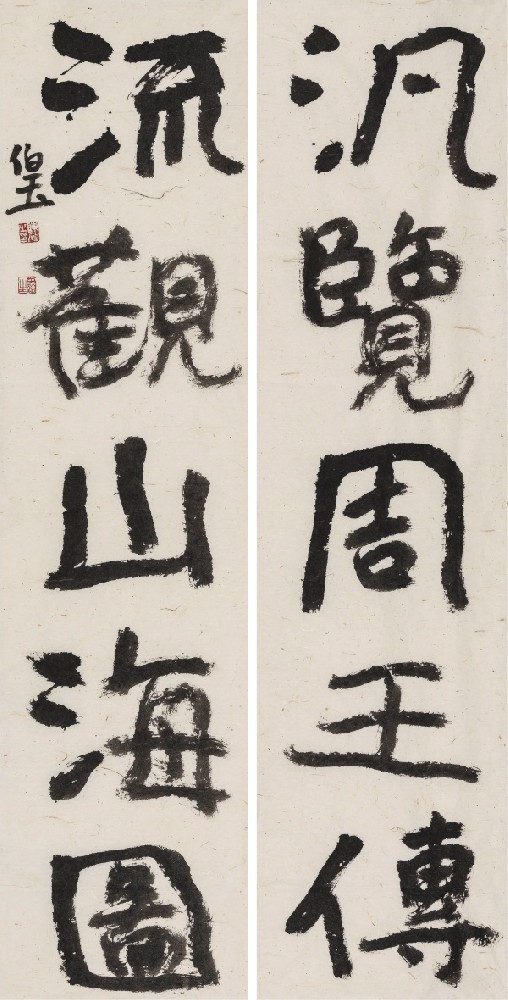 汎覽周王傳
流觀山海圖